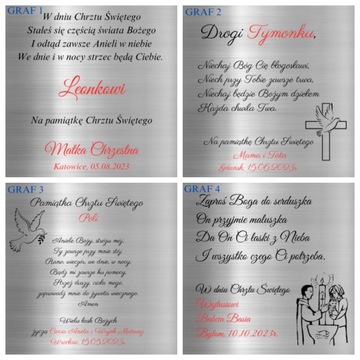 GRAF 1
W dniu Chrztu Świętego
Stałeś się częścią świata Bożego
I odtąd zawsze Anieli w niebie
We dnie i w nocy strzec będą Ciebie.
Leonkowi
Na pamiątkę Chrztu Świętego
Matka Chrzestna
Katowice, 05.08.2023
GRAF 2
Drogi Tymonku,
Niechaj Bóg Cię błogosławi,
Niech przy Tobie zawsze trwa,
Niechaj będzie Bożym dziełem
Każda chwila Twa.
Na pamiątkę Chrztu Świętego
Mama i Tata
Gdańsk, 15.06.2023r.
GRAF 3
Pamiątka Chrztu Świętego
Poli
Aniele Boży, stróżu mój,
Ty zawsze przy mnie stój.
Rano, wieczór, we dnie, w nocy
Bądź mi zawsze ku pomocy.
Strzeż duszy, ciała mego,
zaprowadź mnie do żywota wiecznego.
Amen
Wielu łask Bożych
życzą Ciocia Aniela i Wujek Mateusz
Wrocław, 15.05.2023r.
GRAF 4
Zaproś Boga do serduszka
On przyjmie maluszka
Da On Ci łaski z Nieba
I wszystko czego Ci potrzeba.
W dniu Chrztu Świętego
Wojtusiowi
Babcia Basia
Bytom, 10.10.2023r.